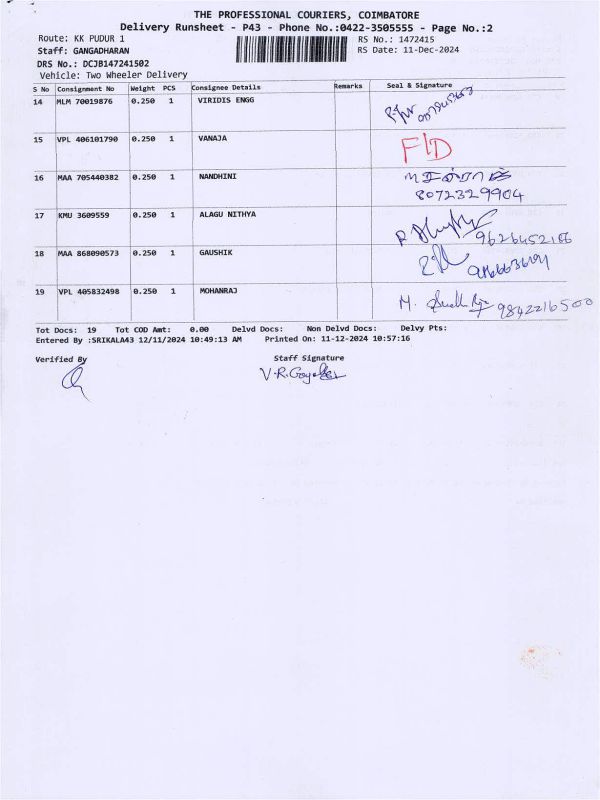 THE PROFESSIONAL COURIERS, COIMBATORE
Delivery Runsheet - P43 - Phone No.:0422-3505555 - Page No.:2
Route: KK PUDUR 1 RS No.: 1472415
Staff: GANGADHARAN RS Date: 11-Dec-2024
DRS No.: DCJB147241502
Vehicle: Two Wheeler Delivery
S No Consignment No Weight PCS Consignee Details Remarks Seal & Signature
14 MLM 70019876 0.250 1 VIRIDIS ENGG
15 VPL 406101790 0.250 1 VANAJA F/D
16 MAA 705440382 0.250 1 NANDHINI
8072329904
17 KMU 3609559 0.250 1 ALAGU NITHYA
18 MAA 868090573 0.250 1 GAUSHIK
19 VPL 405832498 0.250 1 MOHANRAJ M. 9842216500
Tot Docs: 19 Tot COD Amt: 0.00 Delvd Docs: Non Delvd Docs: Delvy Pts:
Entered By :SRIKALA43 12/11/2024 10:49:13 AM Printed On: 11-12-2024 10:57:16
Verified By Staff Signature